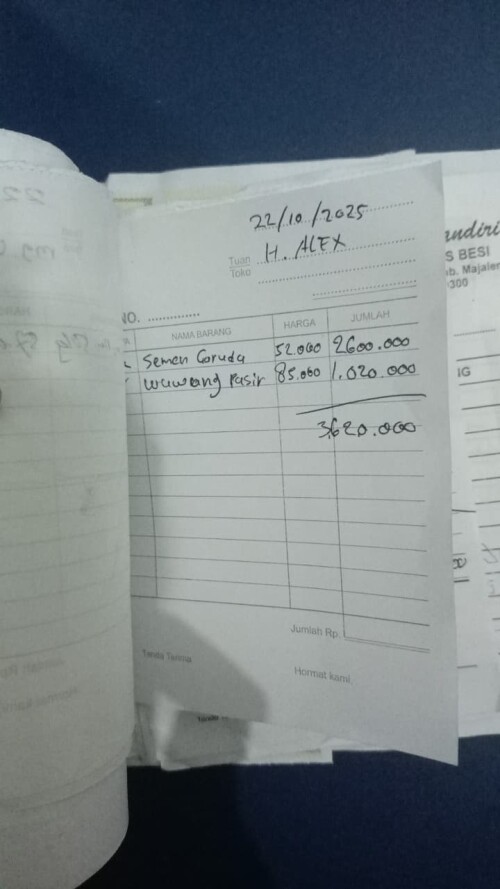 22/10/2025
Tuan H. ALEX
Toko
NO.
NAMA BARANG HARGA JUMLAH
Semen Garuda 52.000 2600.000
wuwung Pasir 85.000 1.020.000
3.620.000
Jumlah Rp.
Tanda Terima
Hormat kami,
andiri
S BESI
ab. Majalen
300